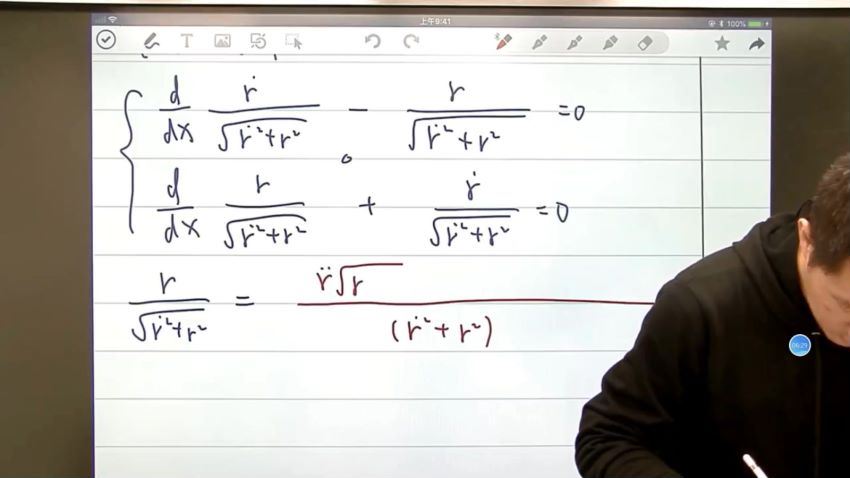 上午9:41
100%
T
d/dx ṙ/√(ṙ²+r²) − r/√(ṙ²+r²) =0
d/dx r/√(ṙ²+r²) + ṙ/√(ṙ²+r²) =0
r/√(ṙ²+r²) = r̈√r / (ṙ²+r²)
06:29